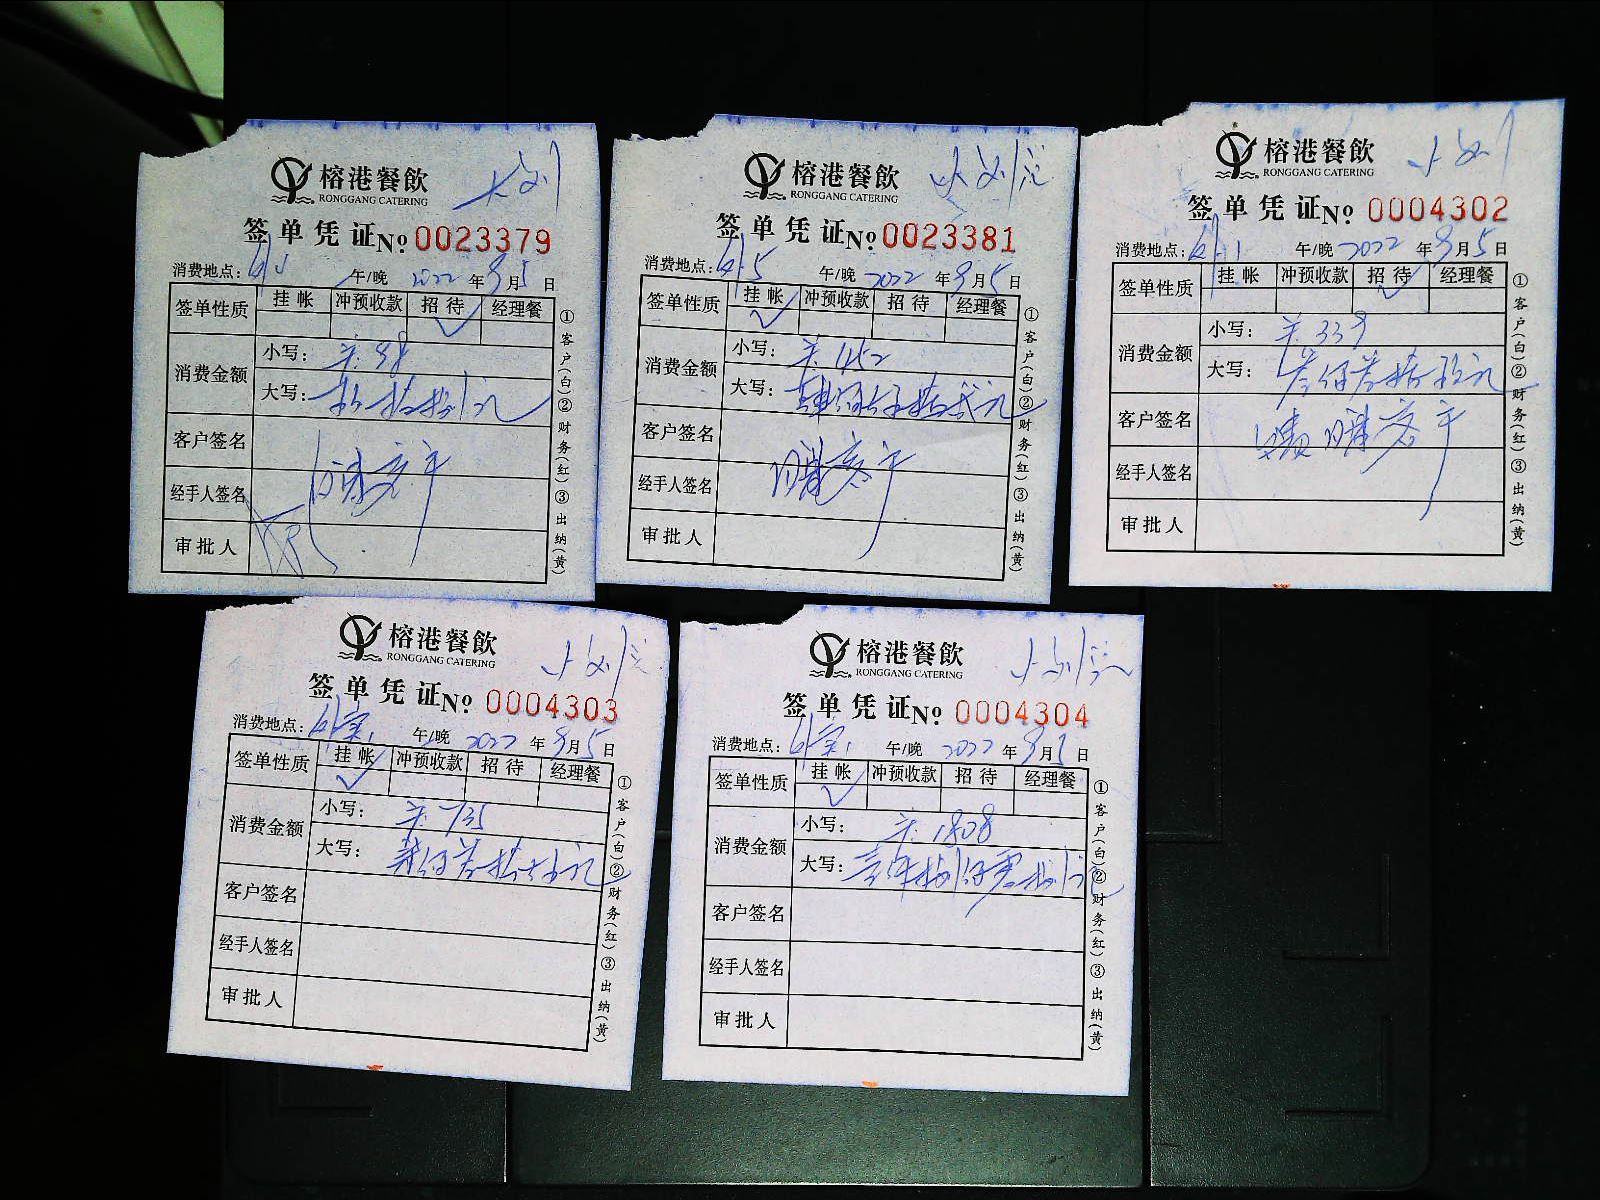 榕港餐飲
RONGGANG CATERING
签单凭证 No 0023379
消费地点: 午/晚 2022 年 9 月 5 日
签单性质 挂帐 冲预收款 招待 经理餐
✓
消费金额 小写: 98
大写: 玖拾捌元
客户签名
经手人签名
审批人
①客户(白)②财务(红)③出纳(黄)
榕港餐飲
RONGGANG CATERING
签单凭证 No 0023381
消费地点: 午/晚 2022 年 9 月 5 日
签单性质 挂帐 冲预收款 招待 经理餐
✓
消费金额 小写: 452
大写: 肆佰伍拾贰元
客户签名
经手人签名
审批人
①客户(白)②财务(红)③出纳(黄)
榕港餐飲
RONGGANG CATERING
签单凭证 No 0004302
消费地点: 午/晚 2022 年 9 月 5 日
签单性质 挂帐 冲预收款 招待 经理餐
✓
消费金额 小写: 339
大写: 叁佰叁拾玖元
客户签名
经手人签名
审批人
①客户(白)②财务(红)③出纳(黄)
榕港餐飲
RONGGANG CATERING
签单凭证 No 0004303
消费地点: 午/晚 2022 年 9 月 5 日
签单性质 挂帐 冲预收款 招待 经理餐
✓
消费金额 小写: 735
大写: 柒佰叁拾伍元
客户签名
经手人签名
审批人
①客户(白)②财务(红)③出纳(黄)
榕港餐飲
RONGGANG CATERING
签单凭证 No 0004304
消费地点: 午/晚 2022 年 9 月 日
签单性质 挂帐 冲预收款 招待 经理餐
✓
消费金额 小写: 1808
大写: 壹仟捌佰零捌元
客户签名
经手人签名
审批人
①客户(白)②财务(红)③出纳(黄)